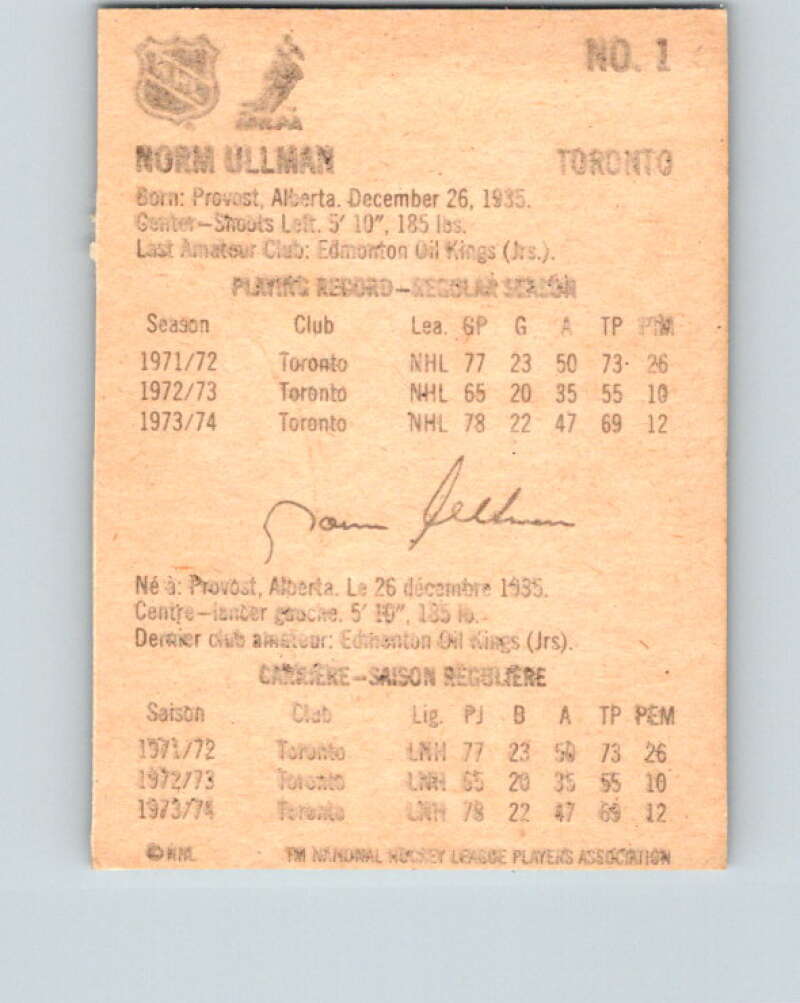 NHL
NHLPA
NO. 1
NORM ULLMAN TORONTO
Born: Provost, Alberta. December 26, 1935.
Center—Shoots Left. 5′ 10″, 185 lbs.
Last Amateur Club: Edmonton Oil Kings (Jrs.).
PLAYING RECORD—REGULAR SEASON
Season Club Lea. GP G A TP PIM
1971/72 Toronto NHL 77 23 50 73 26
1972/73 Toronto NHL 65 20 35 55 10
1973/74 Toronto NHL 78 22 47 69 12
Norm Ullman
Né à: Provost, Alberta. Le 26 décembre 1935.
Centre—lancer gauche. 5′ 10″, 185 lb.
Dernier club amateur: Edmonton Oil Kings (Jrs).
CARRIÈRE—SAISON RÉGULIÈRE
Saison Club Lig. PJ B A TP PEM
1971/72 Toronto LNH 77 23 50 73 26
1972/73 Toronto LNH 65 20 35 55 10
1973/74 Toronto LNH 78 22 47 69 12
© NHL TM NATIONAL HOCKEY LEAGUE PLAYERS ASSOCIATION